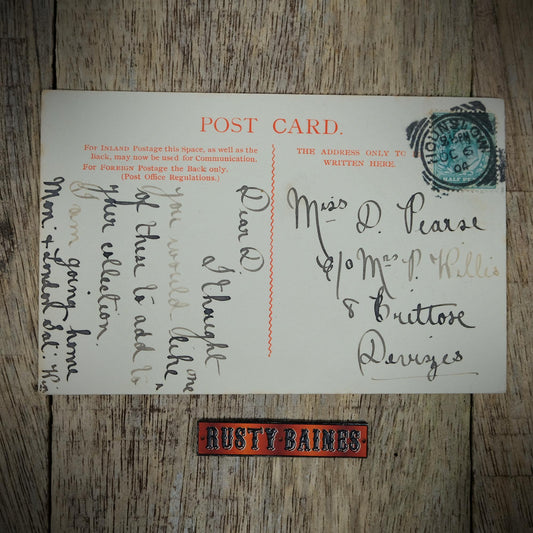 POST CARD.
For INLAND Postage this Space, as well as the
Back, may now be used for Communication.
For FOREIGN Postage the Back only.
(Post Office Regulations.)
THE ADDRESS ONLY TO
WRITTEN HERE.
HOUNSLOW
Miss D. Pearse
c/o Mrs P. Willis
8 Brittose
Devizes
Dear D.
I thought
you would like one
of these to add to
yher collection.
I am going home
Mon: & London Sat:
RUSTY BAINES